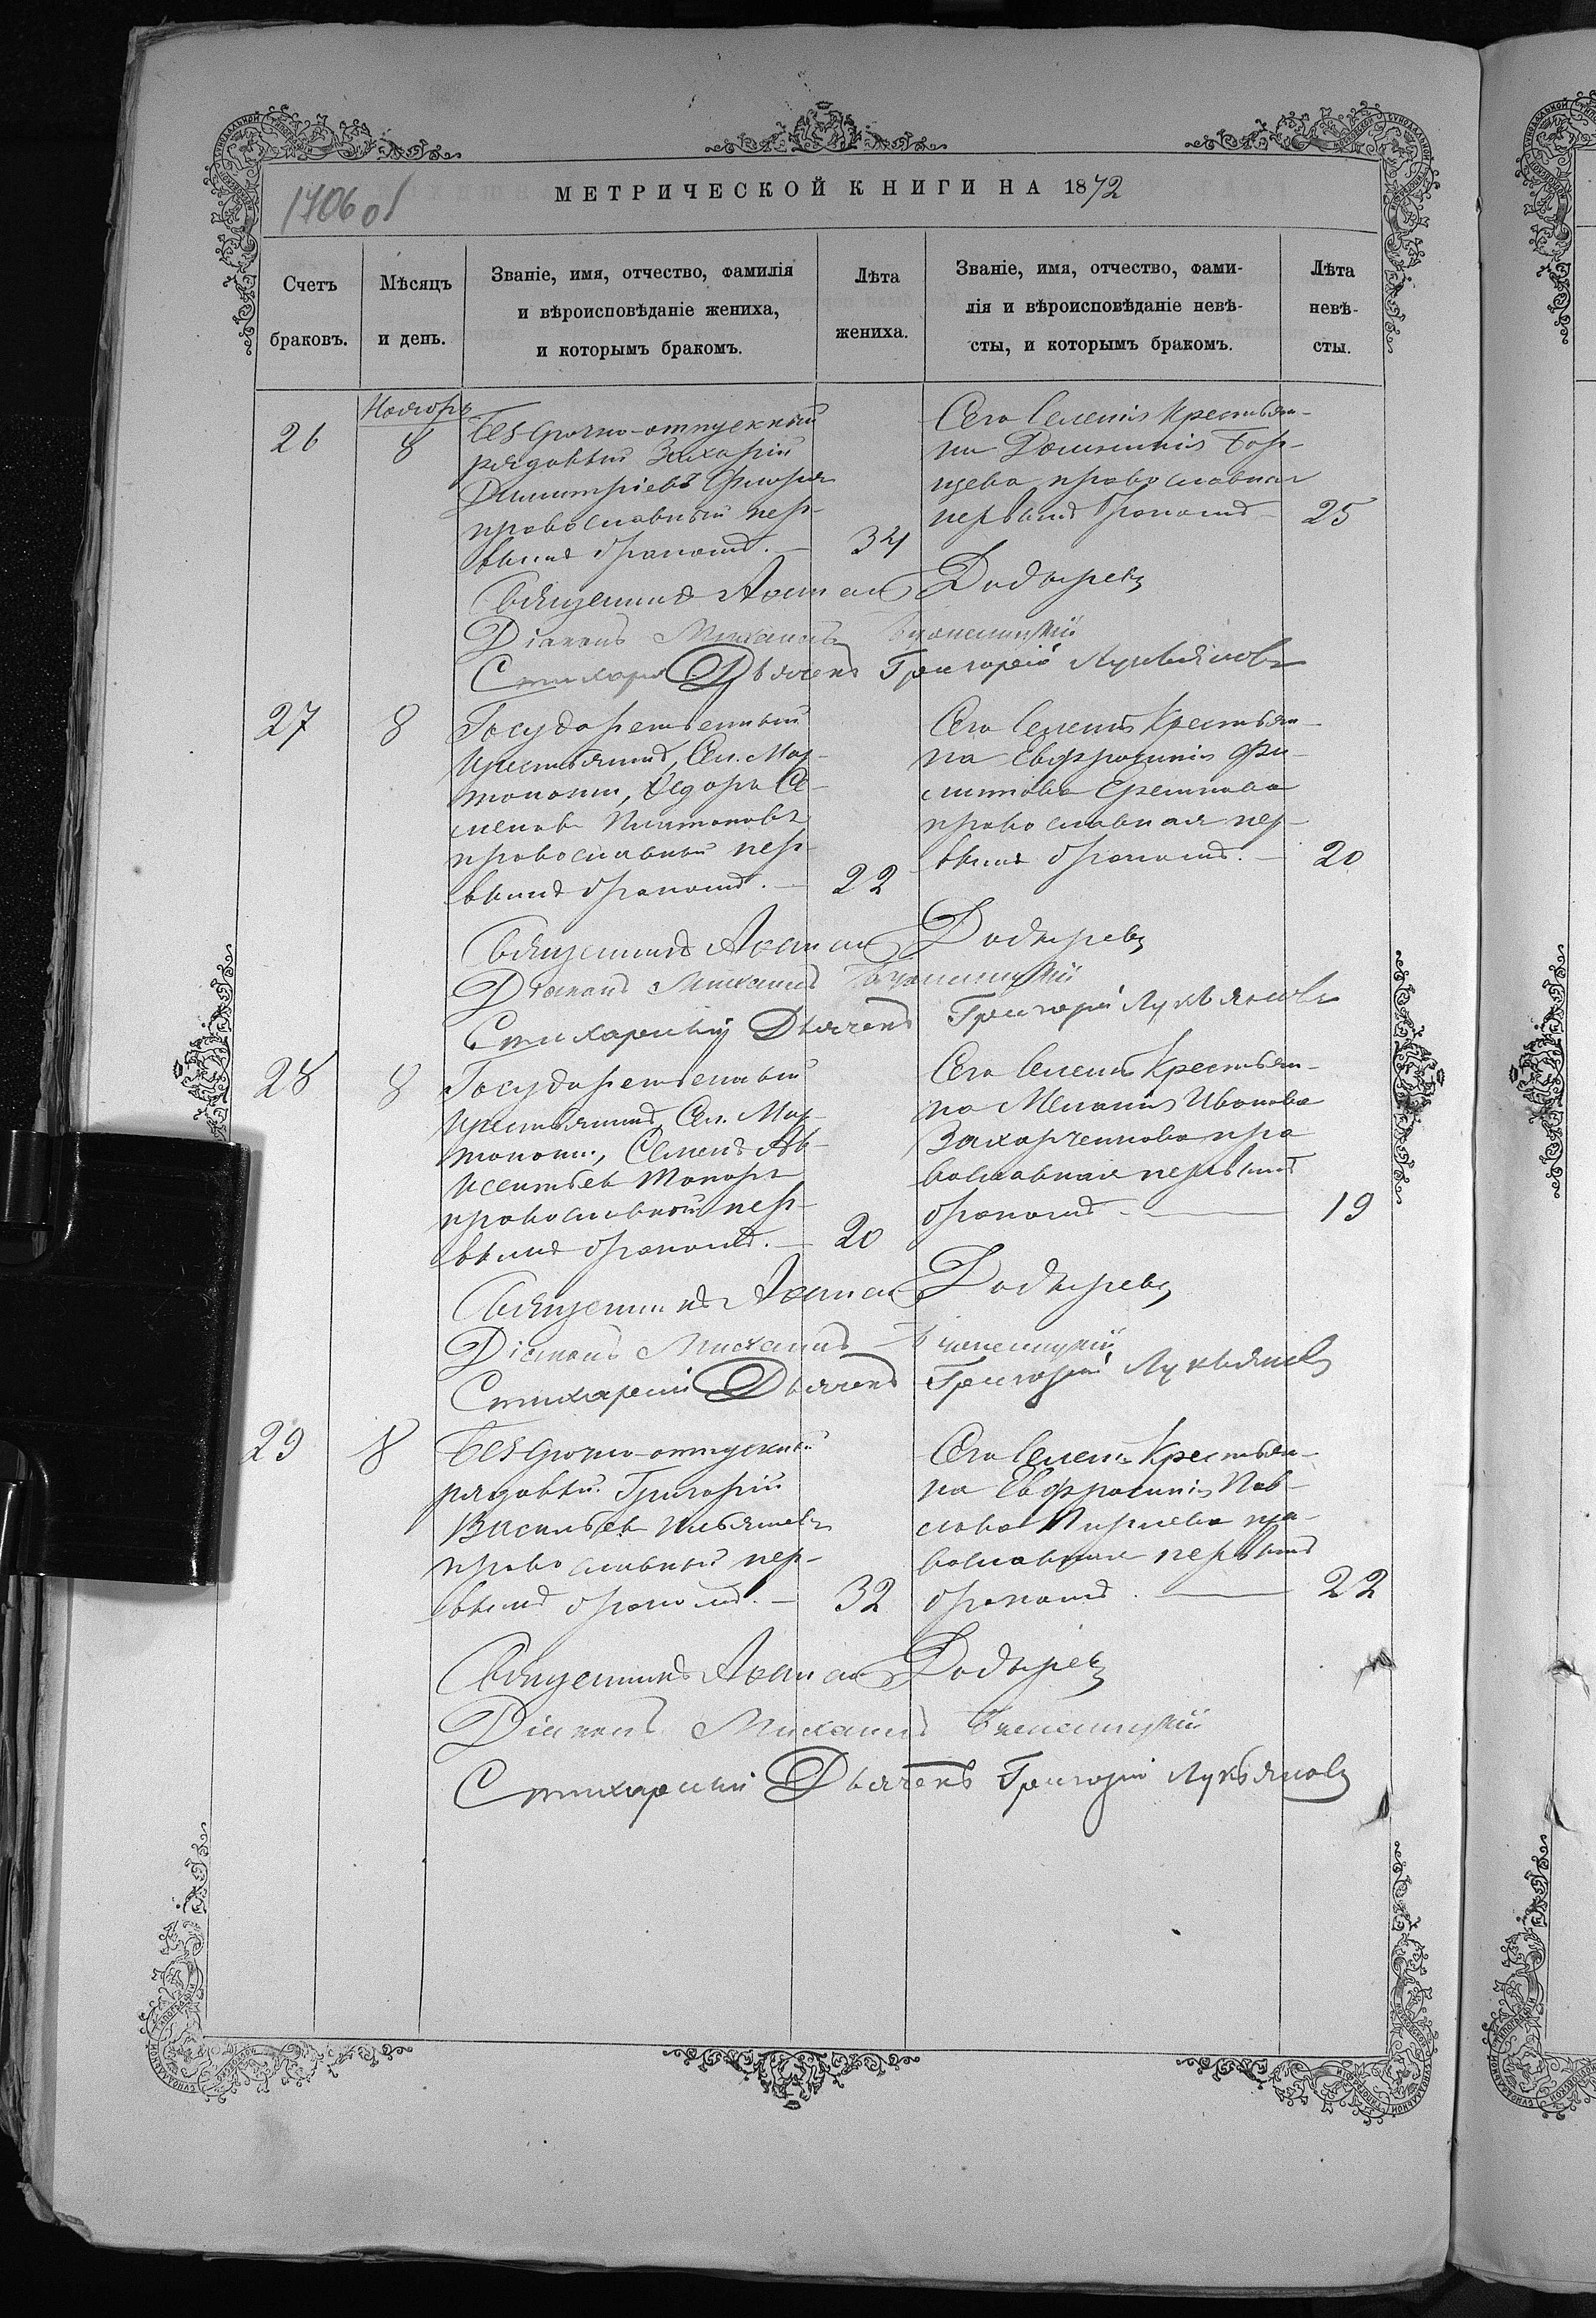 1406 об
МЕТРИЧЕСКОЙ КНИГИ НА 1872
Счетъ браковъ.
Мѣсяцъ и день.
Званіе, имя, отчество, фамилія
и вѣроисповѣданіе жениха,
и которымъ бракомъ.
Лѣта жениха.
Званіе, имя, отчество, фами-
лія и вѣроисповѣданіе невѣ-
сты, и которымъ бракомъ.
Лѣта невѣ-
сты.
Ноябрь
26
8
Безсрочно-отпускный
рядовый Захарій
Димитріевъ
православный пер-
вымъ бракомъ. —
34
Сего Селенія Крестьян-
ка Домникія Бор-
щева православная
первымъ бракомъ —
25
Священникъ Іоаннъ
Діаконъ Михаилъ
Стихар Дьячекъ Григорій Лукьяновъ
27
8
Государственный
Крестьянинъ, Сел. Мар-
тоноши, Ѳедоръ Се-
меновъ Платоновъ
православный пер-
вымъ бракомъ. —
22
Сего Селенія Крестьян-
ка Евфросинія Фи-
липпова Еремнова
православная пер-
вымъ бракомъ. —
20
Священникъ Іоаннъ
Діаконъ Михаилъ
Стихарный Дьячекъ Григорій Лукьяновъ
28
8
Государственный
Крестьянинъ, Сел. Мар-
тоноши, Семенъ Ав-
ксентьев Токорь
православный пер-
вымъ бракомъ. —
20
Сего Селенія Крестьян-
ка Меланія Иванова
Захарченкова пра
вославная первымъ
бракомъ —
19
Священникъ Іоаннъ
Діаконъ Михаилъ
Стихарный Дьячекъ Григорій Лукьяновъ
29
8
Безсрочно-отпускный
рядовый Григорій
Васильев Ильяшевъ
православный пер-
вымъ бракомъ. —
32
Сего Селенія Крестьян-
ка Евфросинія Пав-
лова пра-
вославная первымъ
бракомъ. —
22
Священникъ Іоаннъ
Діаконъ Михаилъ
Стихарный Дьячекъ Григорій Лукьяновъ